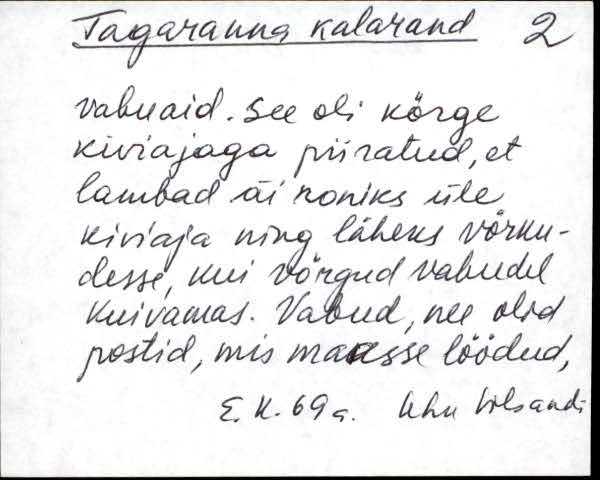 Tagaranna kalarand 2
vabuaid. See oli kõrge
kiviajaga piiratud, et
lambad äi roniks üle
kiviaja ning läheks võrku-
desse, kui võrgud vabudel
kuivamas. Vabud, nee olid
postid, mis maasse löödud,
E. K. 69 a. Uhu Vilsandi